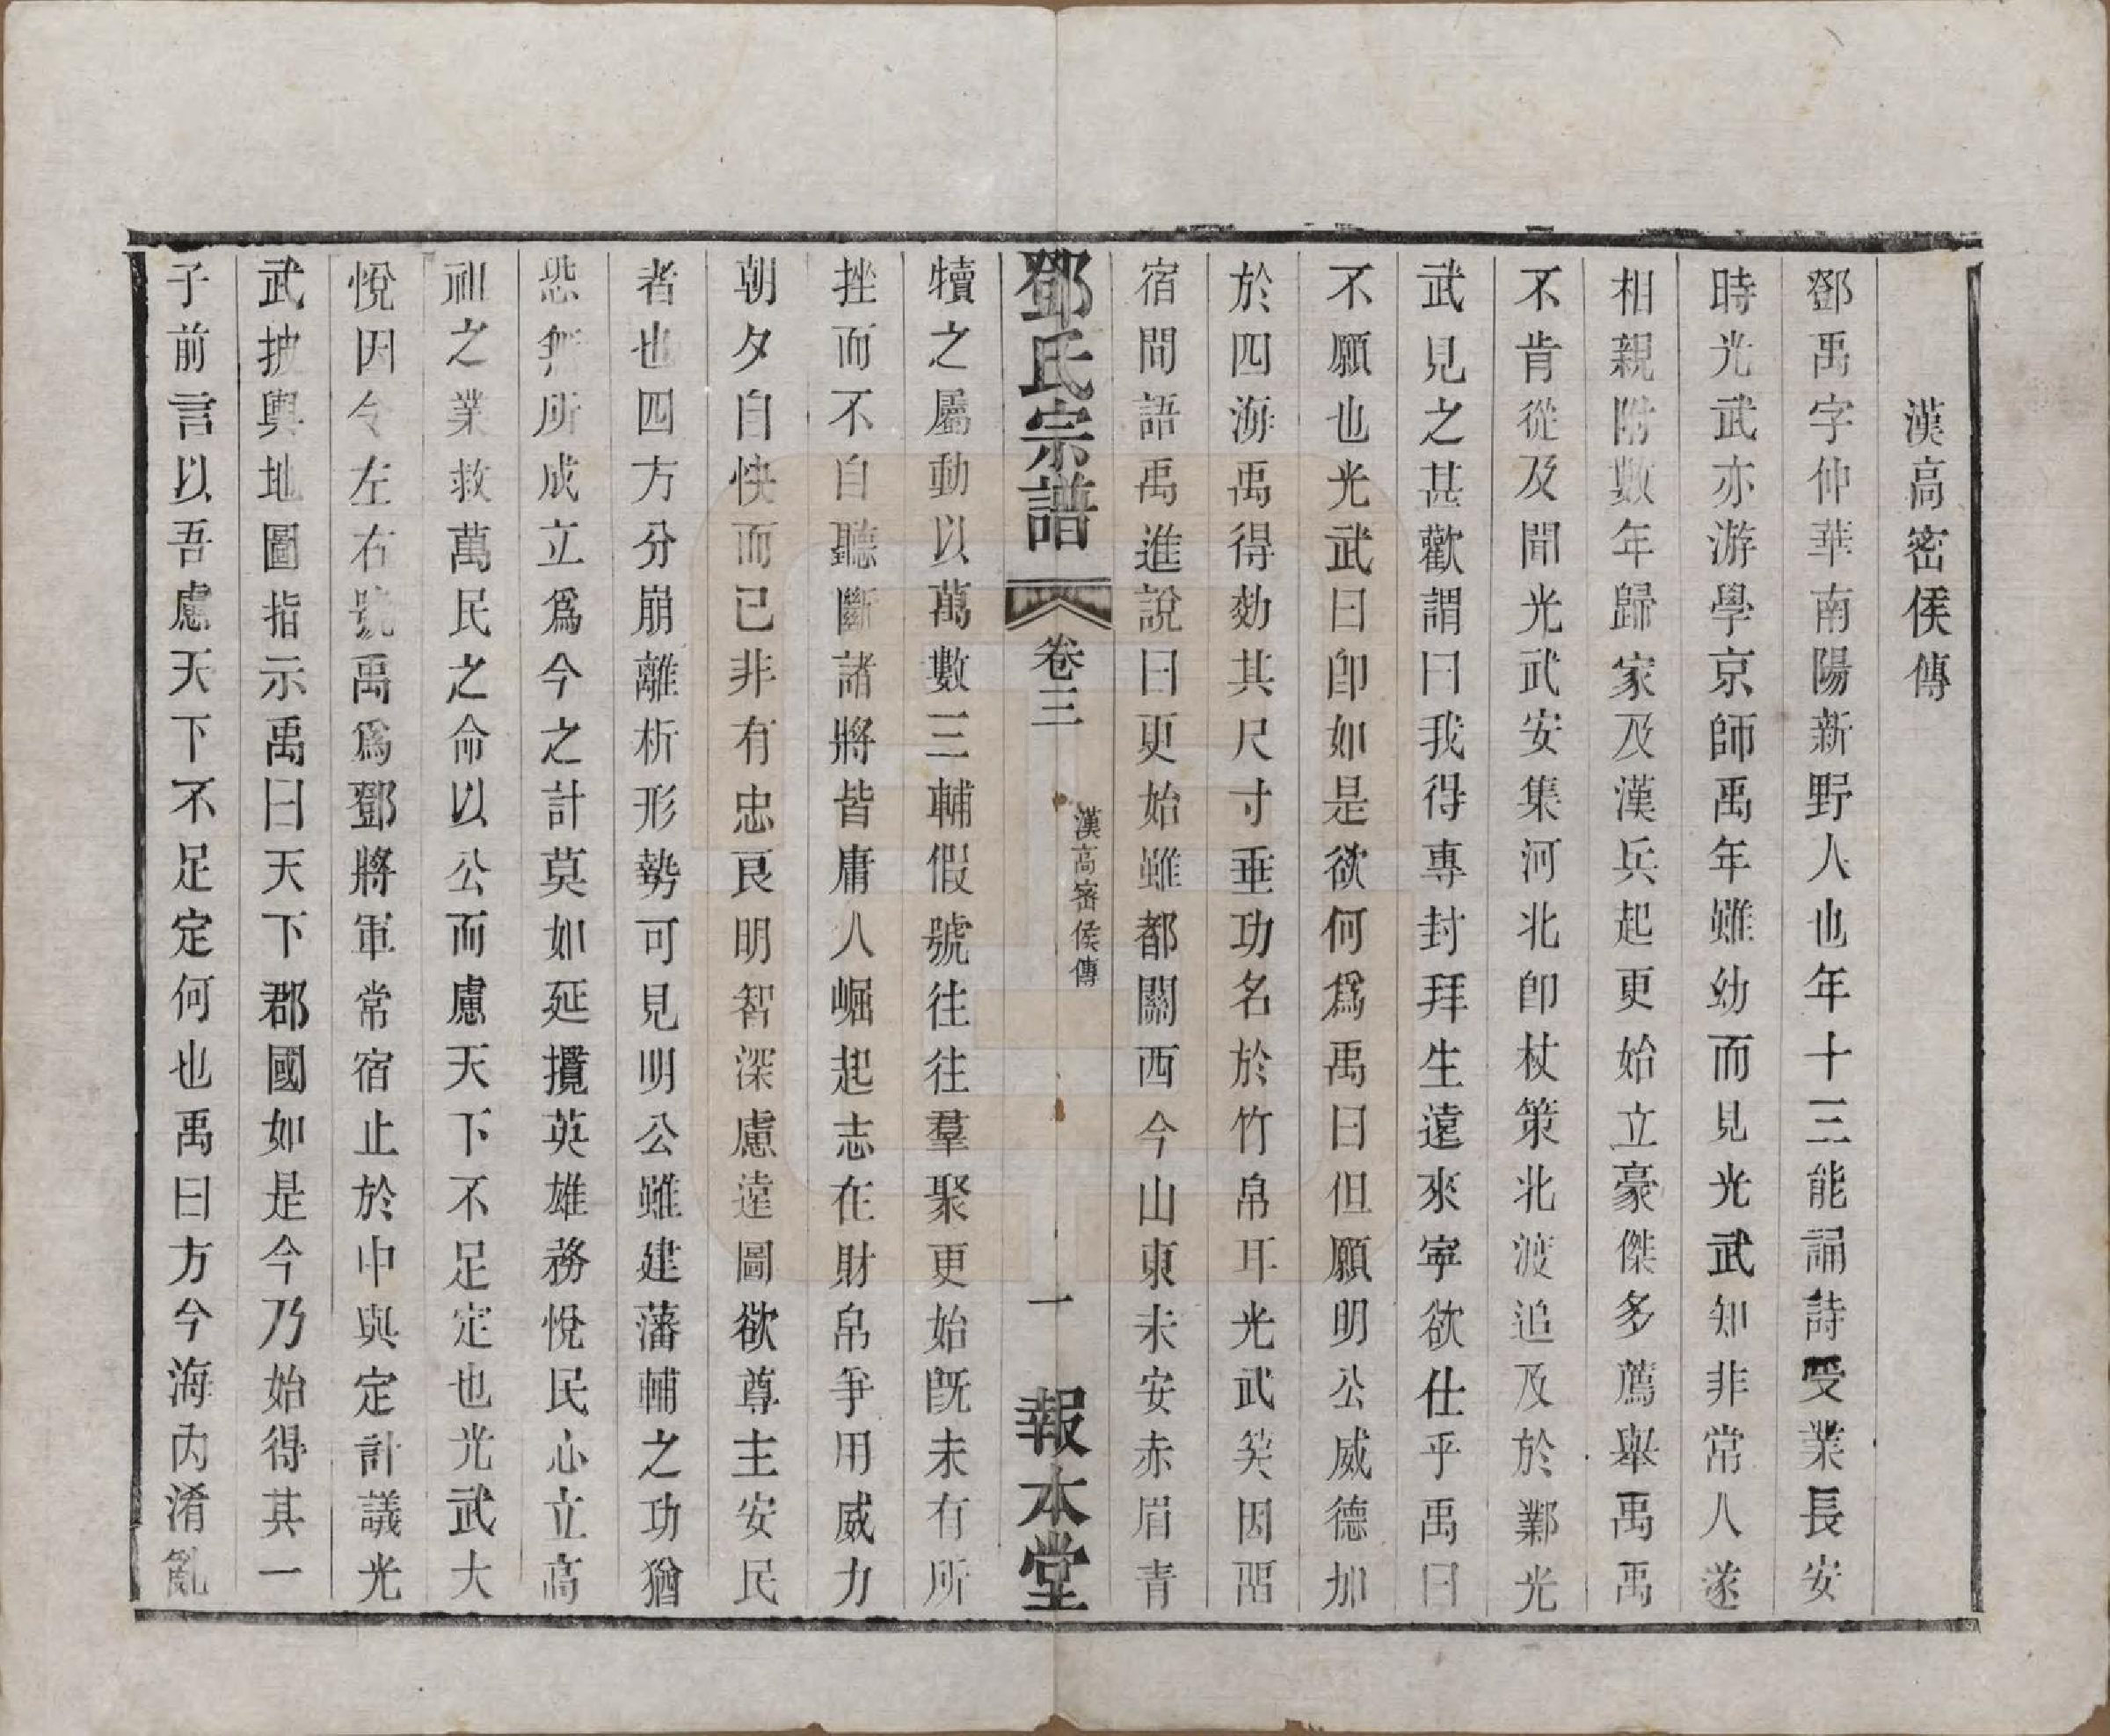 漢高密侯傳
鄧禹字仲華南陽新野人也年十三能誦詩受業長安
時光武亦游學京師禹年雖幼而見光武知非常人遂
相親附數年歸家及漢兵起更始立豪傑多薦舉禹禹
不肯從及聞光武安集河北卽杖策北渡追及於鄴光
武見之甚歡謂曰我得專封拜生遠來寧欲仕乎禹曰
不願也光武曰卽如是欲何爲禹曰但願明公威德加
於四海禹得効其尺寸垂功名於竹帛耳光武笑因畱
宿間語禹進說曰更始雖都關西今山東未安赤眉青
鄧氏宗譜 卷三 漢高密侯傳 一 報本堂
犢之屬動以萬數三輔假號往往羣聚更始旣未有所
挫而不自聽斷諸將皆庸人崛起志在財帛爭用威力
朝夕自快而已非有忠良明智深慮遠圖欲尊主安民
者也四方分崩離析形勢可見明公雖建藩輔之功猶
恐無所成立爲今之計莫如延攬英雄務悅民心立高
祖之業救萬民之命以公而慮天下不足定也光武大
悅因令左右號禹爲鄧將軍常宿止於中與定計議光
武披輿地圖指示禹曰天下郡國如是今乃始得其一
子前言以吾慮天下不足定何也禹曰方今海內淆亂